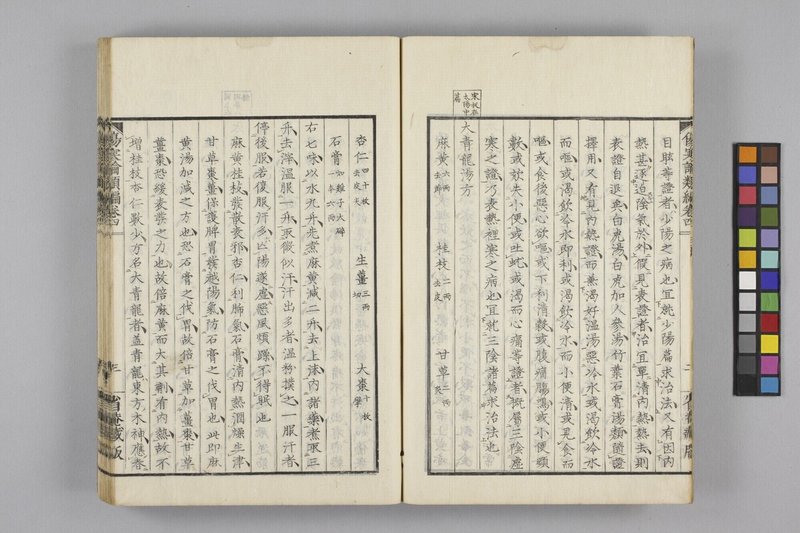 目眩等證者少陽之病也宜就少陽篇求治法又有因內
熱甚逐迫陰氣於外假見表證者治宜單清內熱熱去則
表證自退與白虎湯白虎加人參湯竹葉石膏湯類隨證
擇用又有見內熱證而兼渴好溫湯惡冷水或渴飲冷水
而嘔或渴飲冷水即利或渴飲冷水而小便清或見食而
嘔或食後惡心欲嘔或下利清穀或腹痛腸鳴或小便頻
數或欬失小便或吐蚘或渴而心痛等證者概屬三陰虛
寒之證乃表熱裡寒之病也宜就三陰諸篇求治法也
大青龍湯方
麻黃六兩去節 桂枝二兩去皮 甘草二兩炙
宋板在太陽中篇
杏仁四十枚去皮尖 生薑三兩切 大棗十枚擘
石膏如雞子大碎
右七味以水九升先煮麻黃減二升去上沫內諸藥煮取三
升去滓溫服一升取微似汗汗出多者溫粉撲之一服汗者
停後服若復服汗多亡陽遂虛惡風煩躁不得眠也
麻黃桂枝發散表邪杏仁利肺氣石膏清內熱潤燥生津
甘草棗薑保護脾胃發越陽氣防石膏之伐胃也此即麻
黃湯加減之方也恐石膏之伐胃故倍甘草加薑棗甘草
薑棗恐緩表發之力也故倍麻黃而大其劑有內熱故不
增桂枝杏仁數少方名大青龍者蓋青龍東方木神應春
傷寒論類編卷四
三
省菴藏版
傷寒論類編卷四
二
省菴藏版